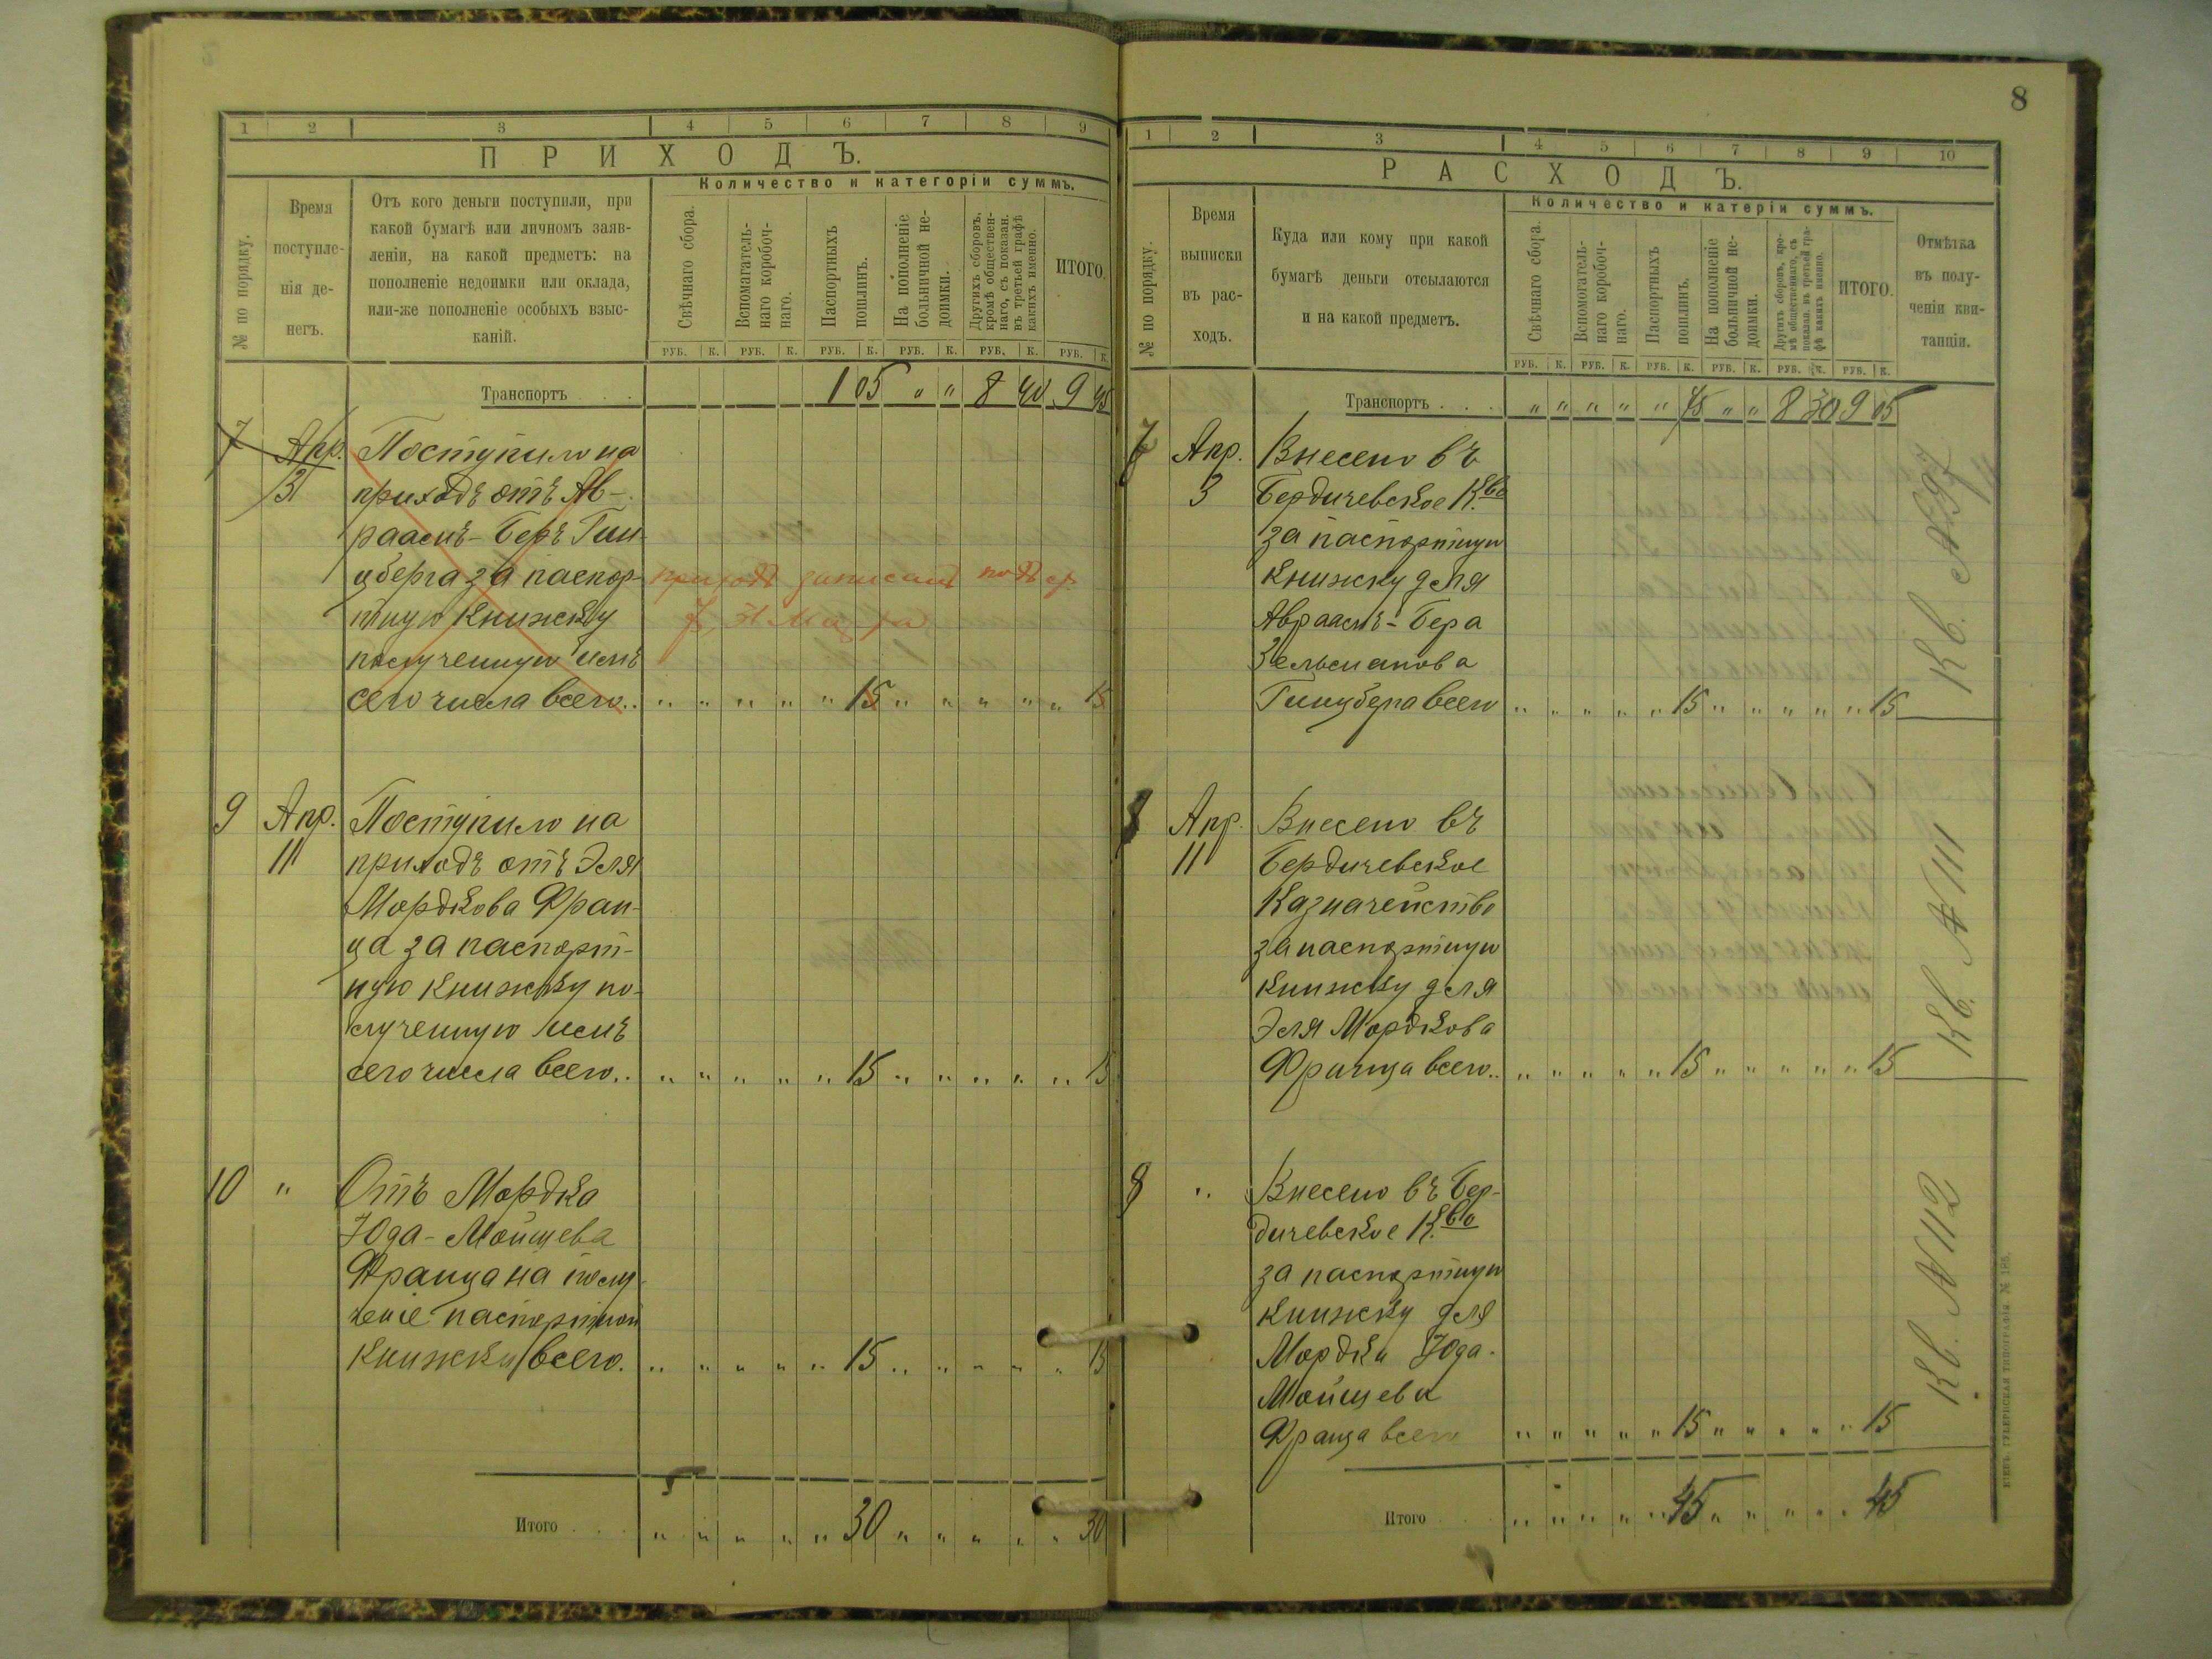 8
1 2 3 4 5 6 7 8 9
ПРИХОДЪ.
№ по порядку.
Время
поступле-
нія де-
негъ.
Отъ кого деньги поступили, при
какой бумагѣ или личномъ заяв-
леніи, на какой предметъ: на
пополненіе недоимки или оклада,
или-же пополненіе особыхъ взыс-
каній.
Количество и категоріи суммъ.
Свѣчнаго сбора.
Вспомагатель-
наго коробоч-
наго.
Паспортныхъ
пошлинъ.
На пополненіе
больничной не-
доимки.
Другихъ сборовъ,
кромѣ обществен-
наго, съ показан.
въ третьей графѣ
какихъ именно.
ИТОГО.
РУБ. К. РУБ. К. РУБ. К. РУБ. К. РУБ. К. РУБ. К.
Транспортъ . . . 1 05 " " 8 40 9 45
7 Апр. Поступило на
3 приходъ отъ Ав-
раамъ-Беръ Гин
цберга за паспор-
приходъ записанъ подъ ст.
тную книжку
7, 31 Марта
полученную имъ
сего числа всего.. " " " " " 15 " " " " " 15
9 Апр. Поступило на
11 приходъ отъ Эля
Мордкова Фран-
ца за паспорт-
ную книжку по-
лученную имъ
сего числа всего.. " " " " " 15 " " " " " 15
10 " Отъ Мордка
Юда-Мойшева
Франца на полу-
ченіе паспортной
книжки всего. " " " " " 15 " " " " " 15
Итого . . . " " " " " 30 " " " " " 30
1 2 3 4 5 6 7 8 9 10
РАСХОДЪ.
№ по порядку.
Время
выписки
въ рас-
ходъ.
Куда или кому при какой
бумагѣ деньги отсылаются
и на какой предметъ.
Количество и катеріи суммъ.
Свѣчнаго сбора.
Вспомогатель-
наго коробоч-
наго.
Паспортныхъ
пошлинъ.
На пополненіе
больничной не-
доимки.
Другихъ сборовъ, кро-
мѣ общественнаго, съ
показан. въ третьей гра-
фѣ какихъ именно.
ИТОГО.
Отмѣтка
въ полу-
ченіи кви-
танціи.
РУБ. К. РУБ. К. РУБ. К. РУБ. К. РУБ. К. РУБ. К.
Транспортъ . . . " " " " " 75 " " 8 30 9 05
Апр. Внесено въ
3 Бердичевское К.во
за паспортную
книжку для
Авраамъ-Бера
Зельманова
Гинцберга всего " " " " " 15 " " " " " 15
Кв.
Апр. Внесено въ
11 Бердичевское
Казначейство
за паспортную
книжку для
Эля Мордкова
Франца всего.. " " " " " 15 " " " " " 15
Кв. № 111
8 " Внесено въ Бер-
дичевское К.во
за паспортную
книжку для
Мордки Юда-
Мойшева
Франца всего " " " " " 15 " " " " " 15
Кв. № 112
Итого . . . " " " " " 45 " " " " " 45
КІЕВЪ. ГУБЕРНСКАЯ ТИПОГРАФІЯ. № 185.